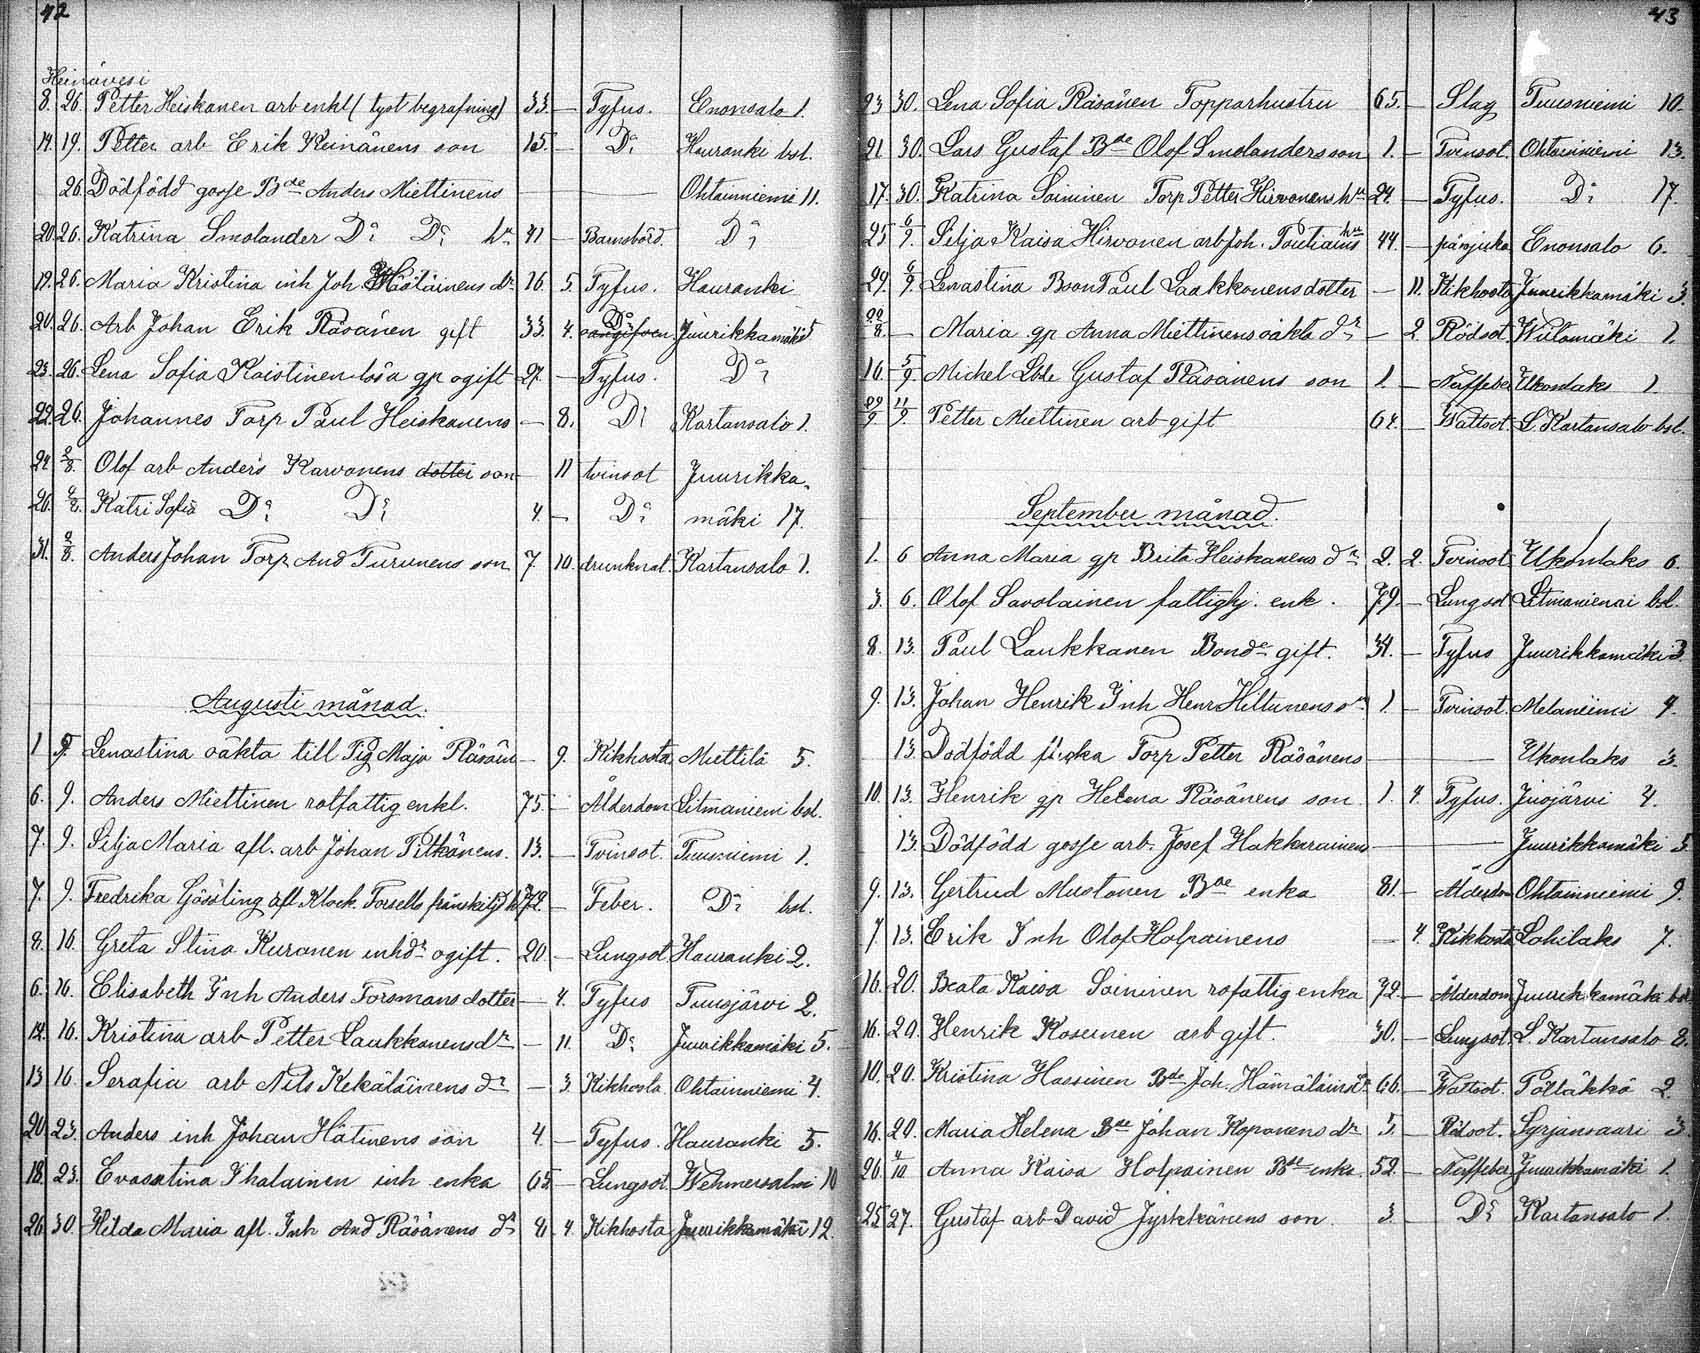 42
Heinävesi
8. 26. Petter Heiskanen arb enkl (tyst begrafning) 33 — Tyfus. Enonsalo 1.
14. 19. Petter arb Erik Keinänens son 15. — Do Hauranki bsl.
26. Dödfödd gosse Bde Anders Miettinens — Ohtainniemi 11.
20. 26. Katrina Smolander Do Do hu 41 — Barnsbörd. Do
19. 26. Maria Kristina inh Joh Hästäinens dr 16. 5. Tyfus. Hauranki
20. 26. Arb Johan Erik Räsänen gift 33. 4. Do Juurikkamäki 5
23. 26. Lena Sofia Kaistinen lösa gp ogift 27. — Tyfus. Do
22. 26. Johannes Torp Paul Heiskanens — 8. Do Kartansalo 1.
24. 2/8. Olof arb Anders Karvonens dotter son — 11 tvinsot Juurikka-
26. 2/8. Katri Sofia Do Do 4. — Do mäki 17.
31. 2/8. Anders Johan Torp And Turunens son 7 10. drunknat Kartansalo 1.
Augusti månad.
1 9. Lenastina oäkta till Pig Maja Räsän — 9. Kikhosta Miettilä 5.
6. 9. Anders Miettinen rotfattig enkl. 75. — Ålderdom Litmaniemi bsl.
7. 9. Silja Maria afl. arb Johan Pitkänens. 13. — Tvinsot. Tuusniemi 1.
7. 9. Fredrika Gössling afl Klock. Forsells frånskild h 72. — Feber. Do bsl.
8. 16. Greta Stina Kuronen inhdr ogift. 20. — Lungsot Hauranki 2.
6. 16. Elisabeth Inh Anders Forsmans dotter — 4. Tyfus Tuusjärvi 2.
12. 16. Kristina arb Petter Laukkanens dr — 11. Do Juurikkamäki 5.
13 16. Serafia arb Nils Kekäläinens dr — 3. Kikhosta Ohtainniemi 4.
20. 23. Anders inh Johan Hätinens son 4. — Tyfus. Hauranki 5.
18. 23. Evastina Ihalainen inh enka 65. — Lungsot Wehmersalmi 10
26. 30. Hilda Maria afl. Inh And Räsänens dr 4. Kikhosta Juurikkamäki 12.
43
23 30. Lena Sofia Räsänen Topparhustru 65. — Slag Tuusniemi 10.
21 30. Lars Gustaf Bde Olof Smolanders son 1. — Tvinsot. Ohtainniemi 13.
17. 30. Katrina Soininen Torp Petter Hirvonens hu 24. — Tyfus. Do 17.
25 6/9. Silja Kaisa Hirvonen arb Joh. Poutiains hu 44. — Enonsalo 6.
29. 6/9. Lenastina Boon Paul Laakkonens dotter — 11. Kikhosta Juurikkamäki 3.
22/8. — Maria gp Anna Miettinens oäkta dr — 2 Rödsot. Wiilamäki 1.
16. 5/9. Michel Gustaf Räsänens son 1. — Nerffeber Ukonlaks 1.
11/9. Petter Miettinen arb gift 64. — Wattsot L. Kartansalo bsl.
September månad.
1. 6 Anna Maria gp Brita Heiskanens dr 2. 2. Tvinsot Ukonlaks 6.
3. 6. Olof Savolainen fattighj. enk. 79. — Lungsot Litmaniemi bsl.
8. 13. Paul Laukkanen Bonde gift. 34. — Tyfus Juurikkamäki 3
9. 13. Johan Henrik Inh Henr Hiltunens sn 1. — Tvinsot. Melaniemi 4.
13 Dödfödd flicka Torp Petter Räsänens — Ukonlaks 3.
10. 13. Henrik gp Helena Räsänens son 1. 4. Tyfus. Juojärvi 4.
13. Dödfödd gosse arb. Josef Hakkarainens — Juurikkamäki 5
9. 13. Gertrud Mustonen Bde enka 81. — Ålderdom Ohtainniemi 9.
7. 13. Erik Inh Olof Holpainens — 4. Kikhosta Lohilaks 7.
16. 20. Beata Kaisa Soininen rofattig enka 72 — Ålderdom Juurikkamäki bsl
16. 20. Henrik Kosunen arb gift. 30. — Lungsot. L. Kartansalo 8.
10. 20. Kristina Hassinen Bde Joh. Hämäläins 66. — Wattsot. Pölläkkä 2.
16. 20. Maria Helena Bde Johan Koponens dr 5. — Rödsot. Syrjänsaari 3.
26 4/10 Anna Kaisa Holpainen Bde enka. 52. — Nerffeber Juurikkamäki 1.
25 27. Gustaf arb David Jyrkkänens son 3. Do Kartansalo 1.